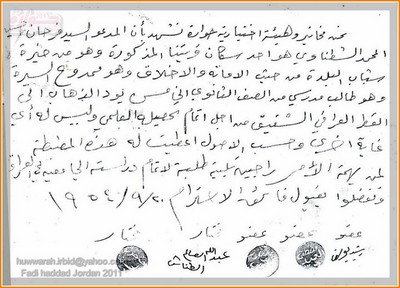 نحن مخاتير وهيئة اختيارية حوارة نشهد بأن المدعو السيد فرحان
المحمد الشطناوي هو احد سكان قريتنا المذكورة وهو من خيرة
شباب البلدة من حيث الامانة والاخلاق وهو ممدوح السيرة
وهو طالب مدرسي من الصف الثانوي الخامس يود الذهاب الى
القطر العراقي الشقيق من اجل اتمام تحصيله العلمي وليس له أي
غاية اخرى وحسب الاصول اعطيت له هذه المضبطة
لمن يهمه الأمر راجين تلبية طلبه لاتمام دراسته الى
وتفضلوا بقبول فائق الاحترام ١٩٥٤/٩/٢٠
عضو عضو عضو مختار مختار
عبدالله
huwwarah.irbid@yahoo.co
Fadi haddad Jordan 2011